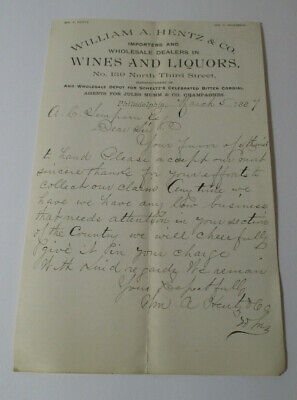 WILLIAM A. HENTZ & CO.
IMPORTERS AND
WHOLESALE DEALERS IN
WINES AND LIQUORS,
No. 139 North Third Street,
AND WHOLESALE DEPOT FOR SCHEETZ'S CELEBRATED BITTER CORDIAL
AGENTS FOR JULES MUMM & CO. CHAMPAGNES
Philadelphia, March 5 1887
A. C. Simpson Esq
Dear Sir
Your favor of
to hand Please accept our most
sincere thanks for your efforts to
collect our claim Any time we
have we have any law business
that needs attention in your section
of the Country we will cheerfully
give it in your charge
With Kind regards We remain
Yours Respectfully
Wm A Hentz & Co